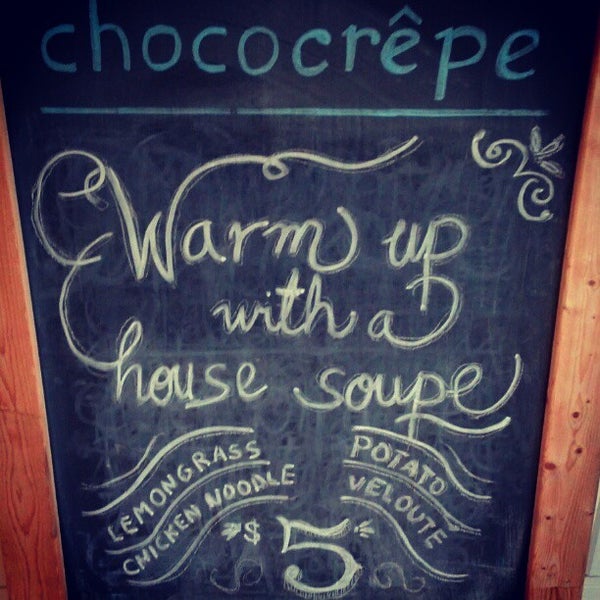 chococrêpe
Warm up
with a
house soupe
LEMONGRASS
CHICKEN NOODLE
POTATO
VELOUTE
$5